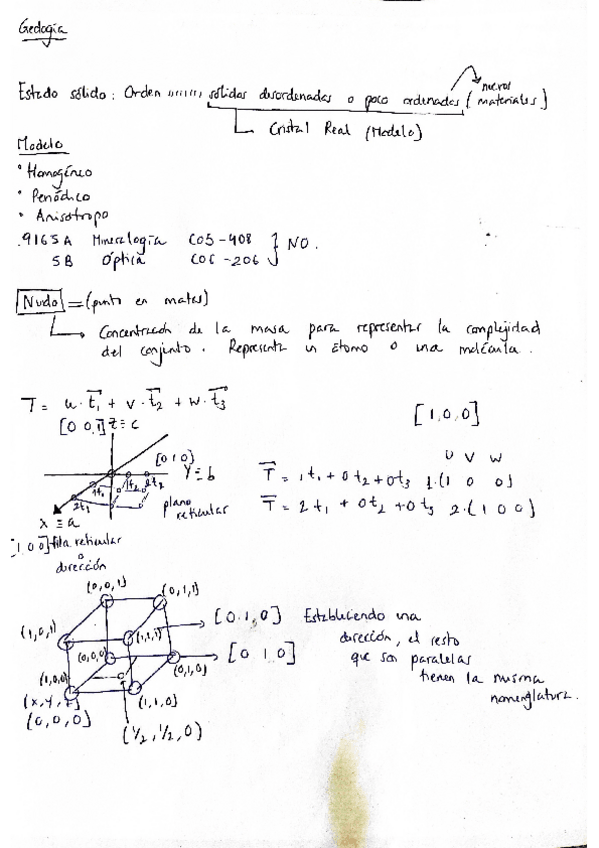 Geología
Estado sólido: Orden ,,,,,,, sólidos desordenados o poco ordenados (nuevos materiales)
Cristal Real (Modelo)
Modelo
· Homogéneo
· Periódico
· Anisotropo
.9165A Mineralogía C05-408 } NO.
5B Óptica C06-206
Nudo = (punto en matas)
Concentración de la masa para representar la complejidad
del conjunto. Representa un átomo o una molécula.
T = u·t1 + v·t2 + w·t3
[1,0,0]
[0 0 1] z ≡ c
[0 1 0]
y ≡ b
1t1 1t2 2t2
2t1
plano reticular
x ≡ a
[1 0 0] fila reticular
o
dirección
u v w
T = 1t1 + 0t2 + 0t3 1·(1 0 0)
T = 2t1 + 0t2 + 0t3 2·(1 0 0)
(0,0,1) (0,1,1)
(1,0,1) (1,1,1)
(0,0,0) (0,1,0)
(1,0,0)
(1,1,0)
(0,0,0)
(1/2, 1/2, 0)
[0,1,0]
[0 1 0]
Estableciendo una
dirección, el resto
que son paralelas
tienen la misma
nomenclatura.